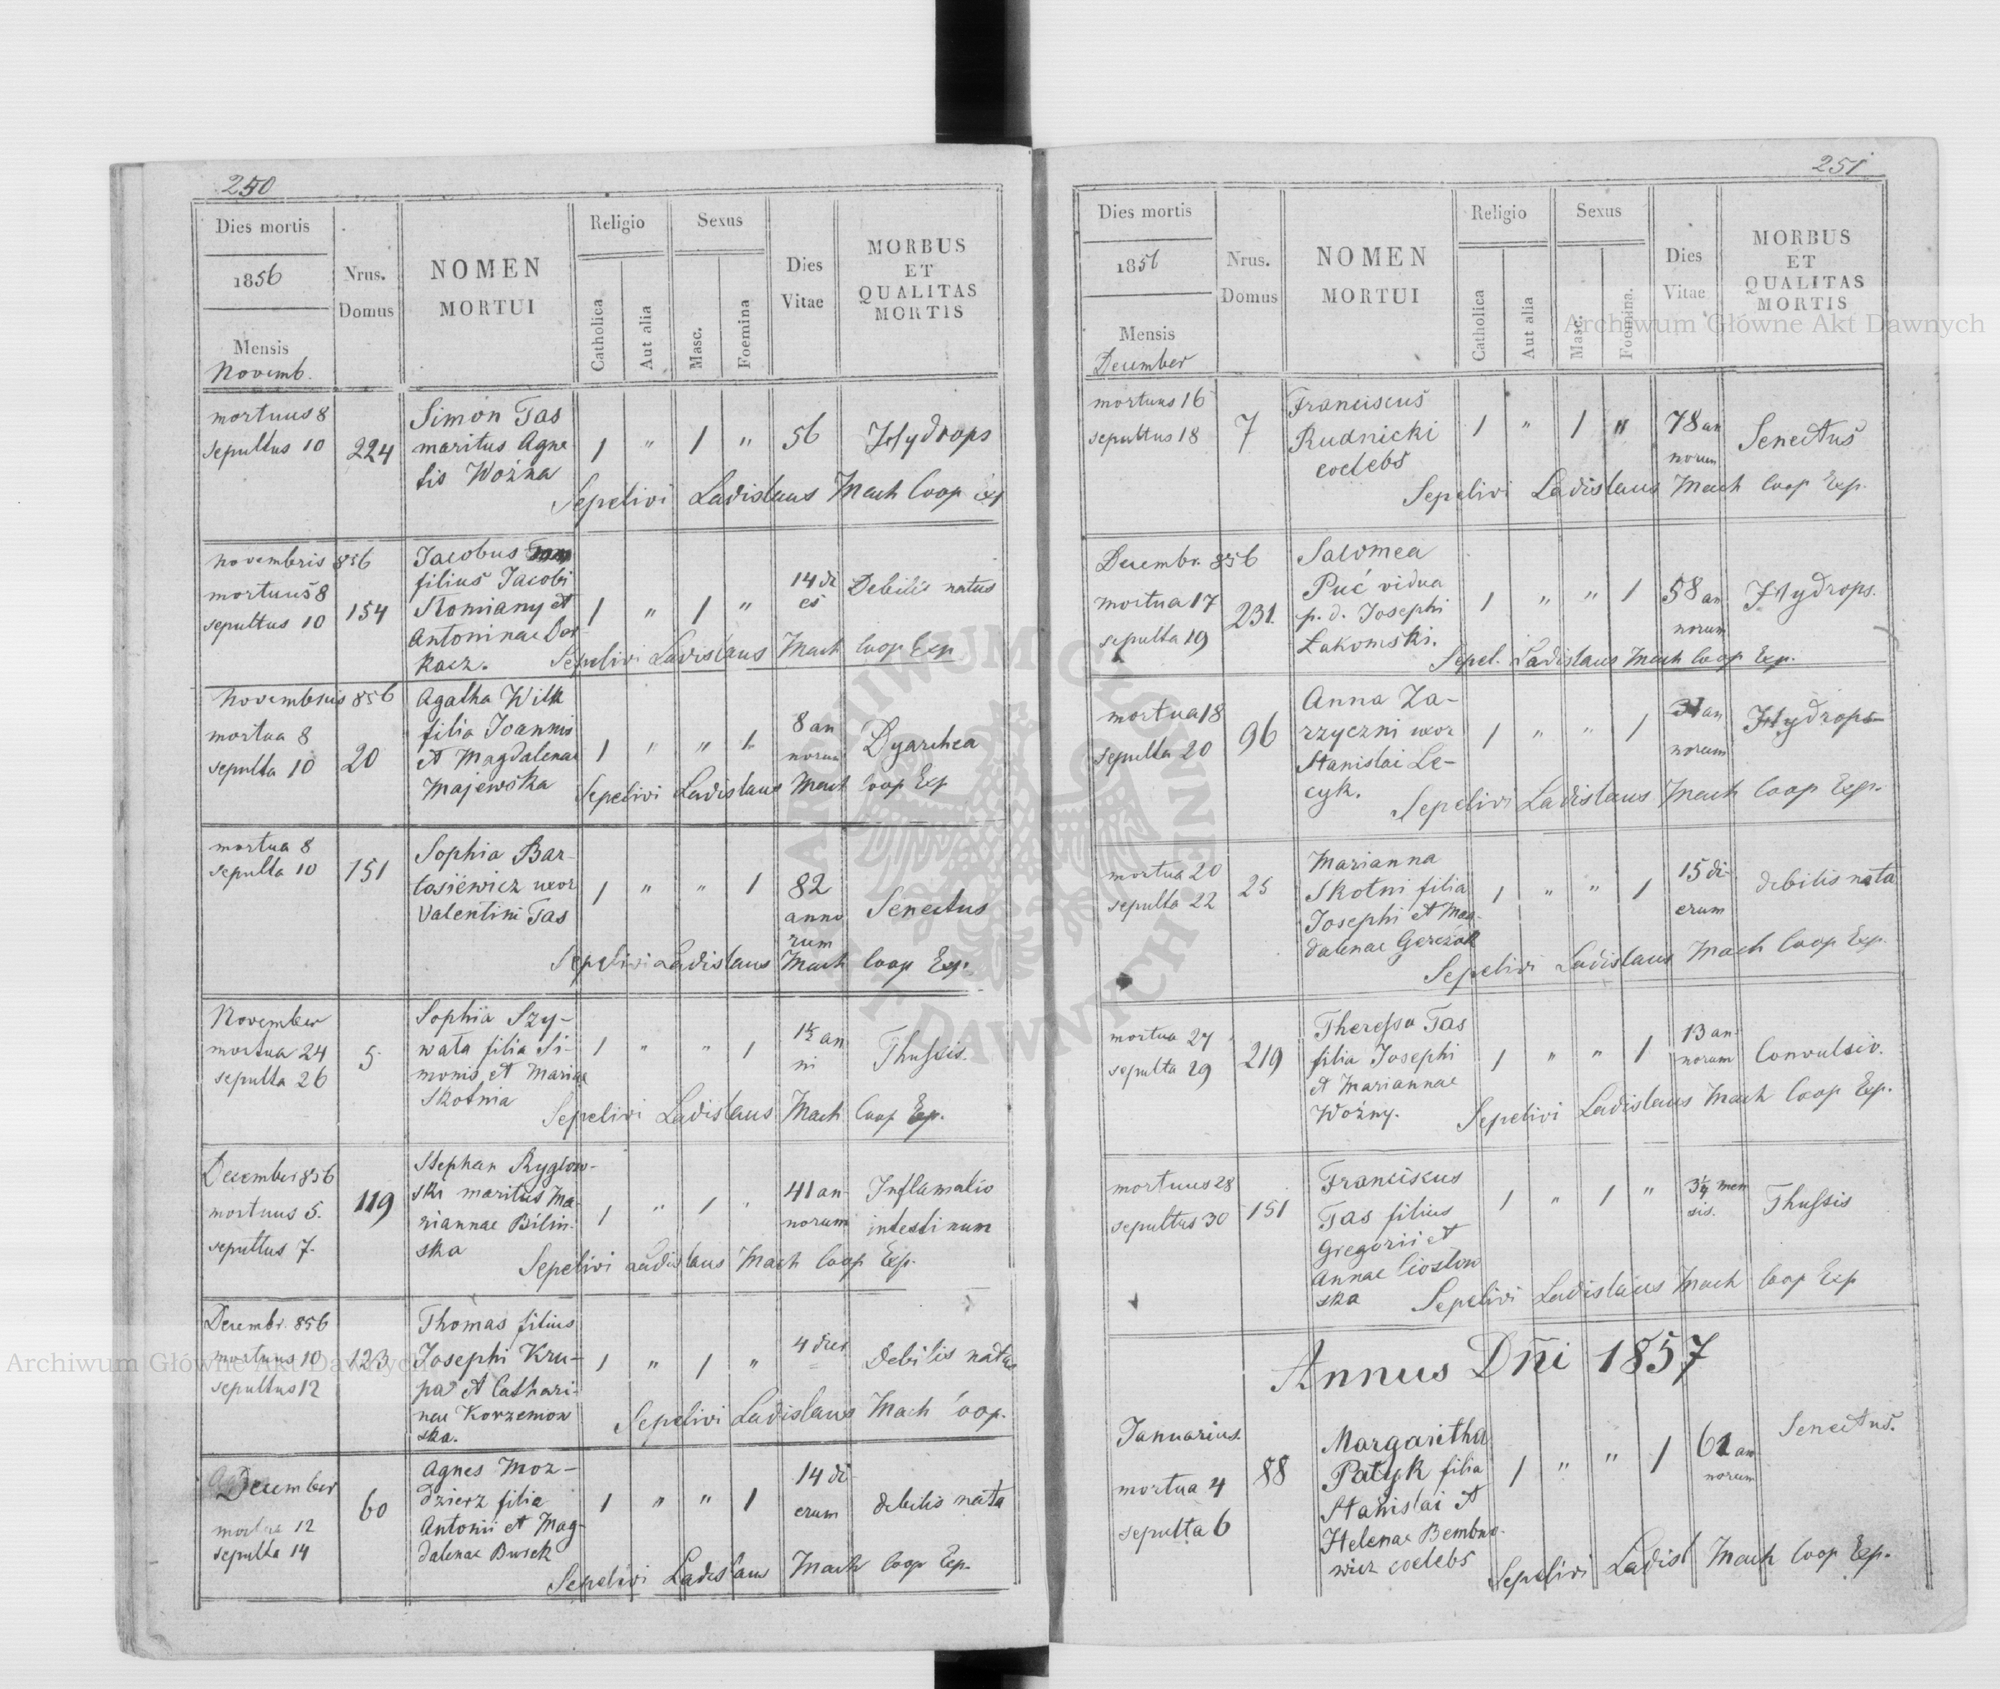 250
Dies mortis
1856
Mensis
Novemb.
Nrus.
Domus
NOMEN
MORTUI
Religio
Catholica
Aut alia
Sexus
Masc.
Foemina
Dies
Vitae
MORBUS
ET
QUALITAS
MORTIS
mortuus 8
sepultus 10
224
Simon Tas
maritus Agne
tis Woźna
1 " 1 "
56
Hydrops
Sepelivi Ladislaus Mach Coop Exp
Novembris 856
mortuus 8
sepultus 10
154
Jacobus
filius Jacobi
Słomiany et
Antoninae Dor
kacz.
1 " 1 "
14 di
es
Debilis natus
Sepelivi Ladislaus Mach Coop Exp
Novembris 856
mortua 8
sepulta 10
20
Agatha Wilk
filia Joannis
et Magdalenae
Majewska
1 " " 1
8 an
norum
Dyarrhea
Sepelivi Ladislaus Mach Coop Exp
mortua 8
sepulta 10
151
Sophia Bar-
tosiewicz uxor
Valentini Tas
1 " " 1
82
anno
rum
Senectus
Sepelivi Ladislaus Mach Coop Exp.
November
mortua 24
sepulta 26
5
Sophia Szy-
wała filia Si-
monis et Marinae
Skotnia
1 " " 1
1½ an
ni
Thussis.
Sepelivi Ladislaus Mach Coop Exp.
December 856
mortuus 5.
sepultus 7.
119
Stephan Ryglow-
ski maritus Ma-
riannae Bilin-
ska
1 " 1 "
41 an-
norum
Inflamatio
intestinum
Sepelivi Ladislaus Mach Coop Exp.
Decembr. 856
mortuus 10
sepultus 12
123
Thomas filius
Josephi Kru-
pa et Cathari-
nae Korzeniow
ska.
1 " 1 "
4 dier
Debilis natus
Sepelivi Ladislaus Mach Coop.
December
mortua 12
sepulta 14
60
Agnes Moz-
dzierz filia
Antonii et Mag-
dalenae Bursek
1 " " 1
14 di-
erum
debilis nata
Sepelivi Ladislaus Mach Coop Exp.
251
Dies mortis
1856
Mensis
December
Nrus.
Domus
NOMEN
MORTUI
Religio
Catholica
Aut alia
Sexus
Masc.
Foemina.
Dies
Vitae
MORBUS
ET
QUALITAS
MORTIS
mortuus 16
sepultus 18
7
Franciscus
Rudnicki
coelebs
1 " 1 "
78 an
norum
Senectus
Sepelivi Ladislaus Mach Coop Exp.
Decembr. 856
mortua 17
sepulta 19
231.
Salomea
Puć vidua
p. d. Josephi
Łakomski.
1 " " 1
58 an
norum
Hydrops.
Sepel. Ladislaus Mach Coop Exp.
mortua 18
sepulta 20
96
Anna Za-
rzyczni uxor
Stanislai Le-
cyk.
1 " " 1
an
norum
Hydrops
Sepelivi Ladislaus Mach Coop Exp.
mortua 20
sepulta 22
25
Marianna
Skotni filia
Josephi et Mag-
dalenae Gerczak
1 " " 1
15 di-
erum
debilis nata
Sepelivi Ladislaus Mach Coop Exp.
mortua 27
sepulta 29
219
Theressa Tas
filia Josephi
et Mariannae
Woźny.
1 " " 1
13 an-
norum
Convulsio.
Sepelivi Ladislaus Mach Coop Exp.
mortuus 28
sepultus 30
151
Franciscus
Tas filius
Gregorii et
Annae Ciosłow
ska
1 " 1 "
3¼ men
sis.
Thussis
Sepelivi Ladislaus Mach Coop Exp
Annus Dñi 1857
Januarius.
mortua 4
sepulta 6
88
Margaritha
Patyk filia
Stanislai et
Helenae Bembno-
wicz coelebs
1 " " 1
61 an
norum
Senectus.
Sepelivi Ladisl Mach Coop Exp.
Archiwum Główne Akt Dawnych
Archiwum Główne Akt Dawnych
ARCHIWUM GŁÓWNE AKT DAWNYCH